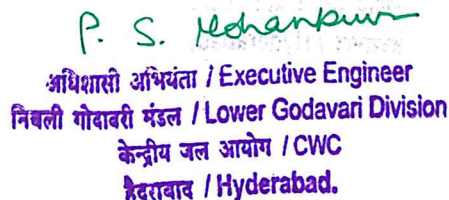 P. S. Mohankumar
अधिशासी अभियंता / Executive Engineer
निचली गोदावरी मंडल / Lower Godavari Division
केन्द्रीय जल आयोग / CWC
हैदराबाद / Hyderabad.